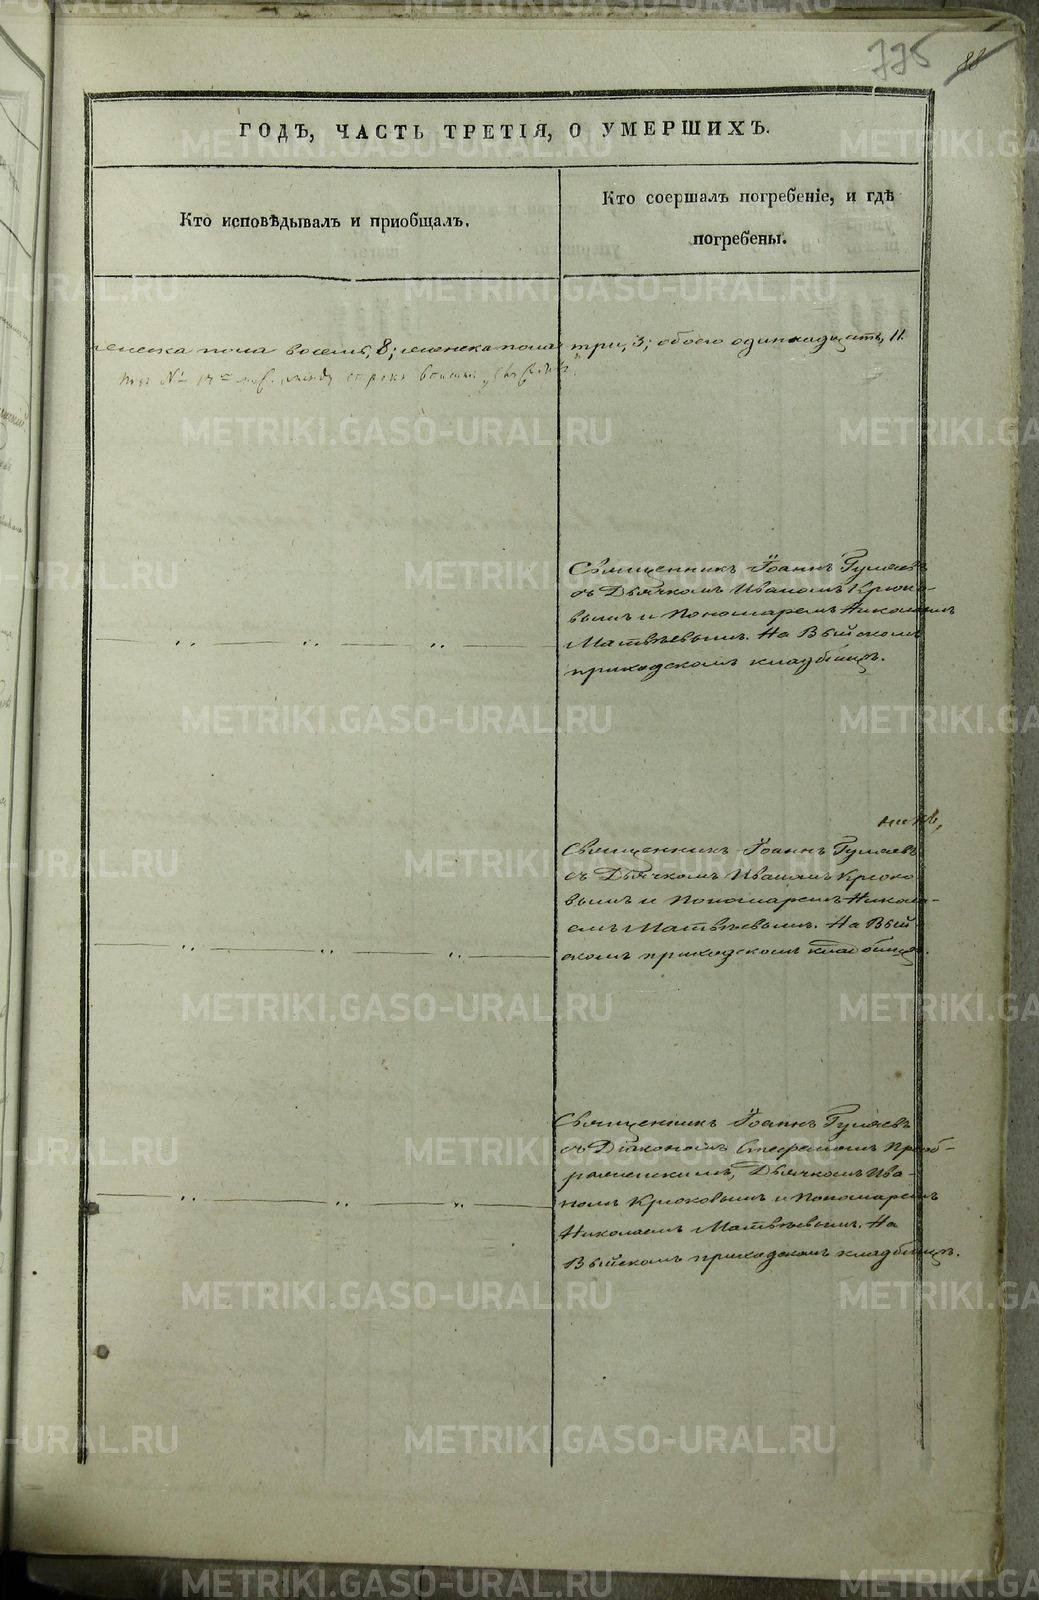 775
88
ГОДЪ, ЧАСТЬ ТРЕТІЯ, О УМЕРШИХЪ.
Кто исповѣдывалъ и пріобщалъ.
Кто соершалъ погребеніе, и гдѣ
погребены.
мужеска пола восемь, 8; женска пола три, 3; обоего одиннадцать, 11.
Священникъ Іоаннъ Гуляевъ
съ Дьячкомъ Иваномъ Крюко-
вымъ и Пономаремъ Николаемъ
Матвѣевымъ. На Выйскомъ
приходскомъ кладбищѣ.
Священникъ Іоаннъ Гуляевъ
съ Дьячкомъ Иваномъ Крюко
вымъ и Пономаремъ Никола-
емъ Матвѣевымъ. На Вый-
скомъ приходскомъ кладбищѣ.
Священникъ Іоаннъ Гуляевъ
съ Діакономъ Стефаномъ Преоб-
раженскимъ, Дьячкомъ Ива-
номъ Крюковымъ и Пономаремъ
Николаемъ Матвѣевымъ. На
Выйскомъ приходскомъ кладбищѣ.
METRIKI.GASO-URAL.RU